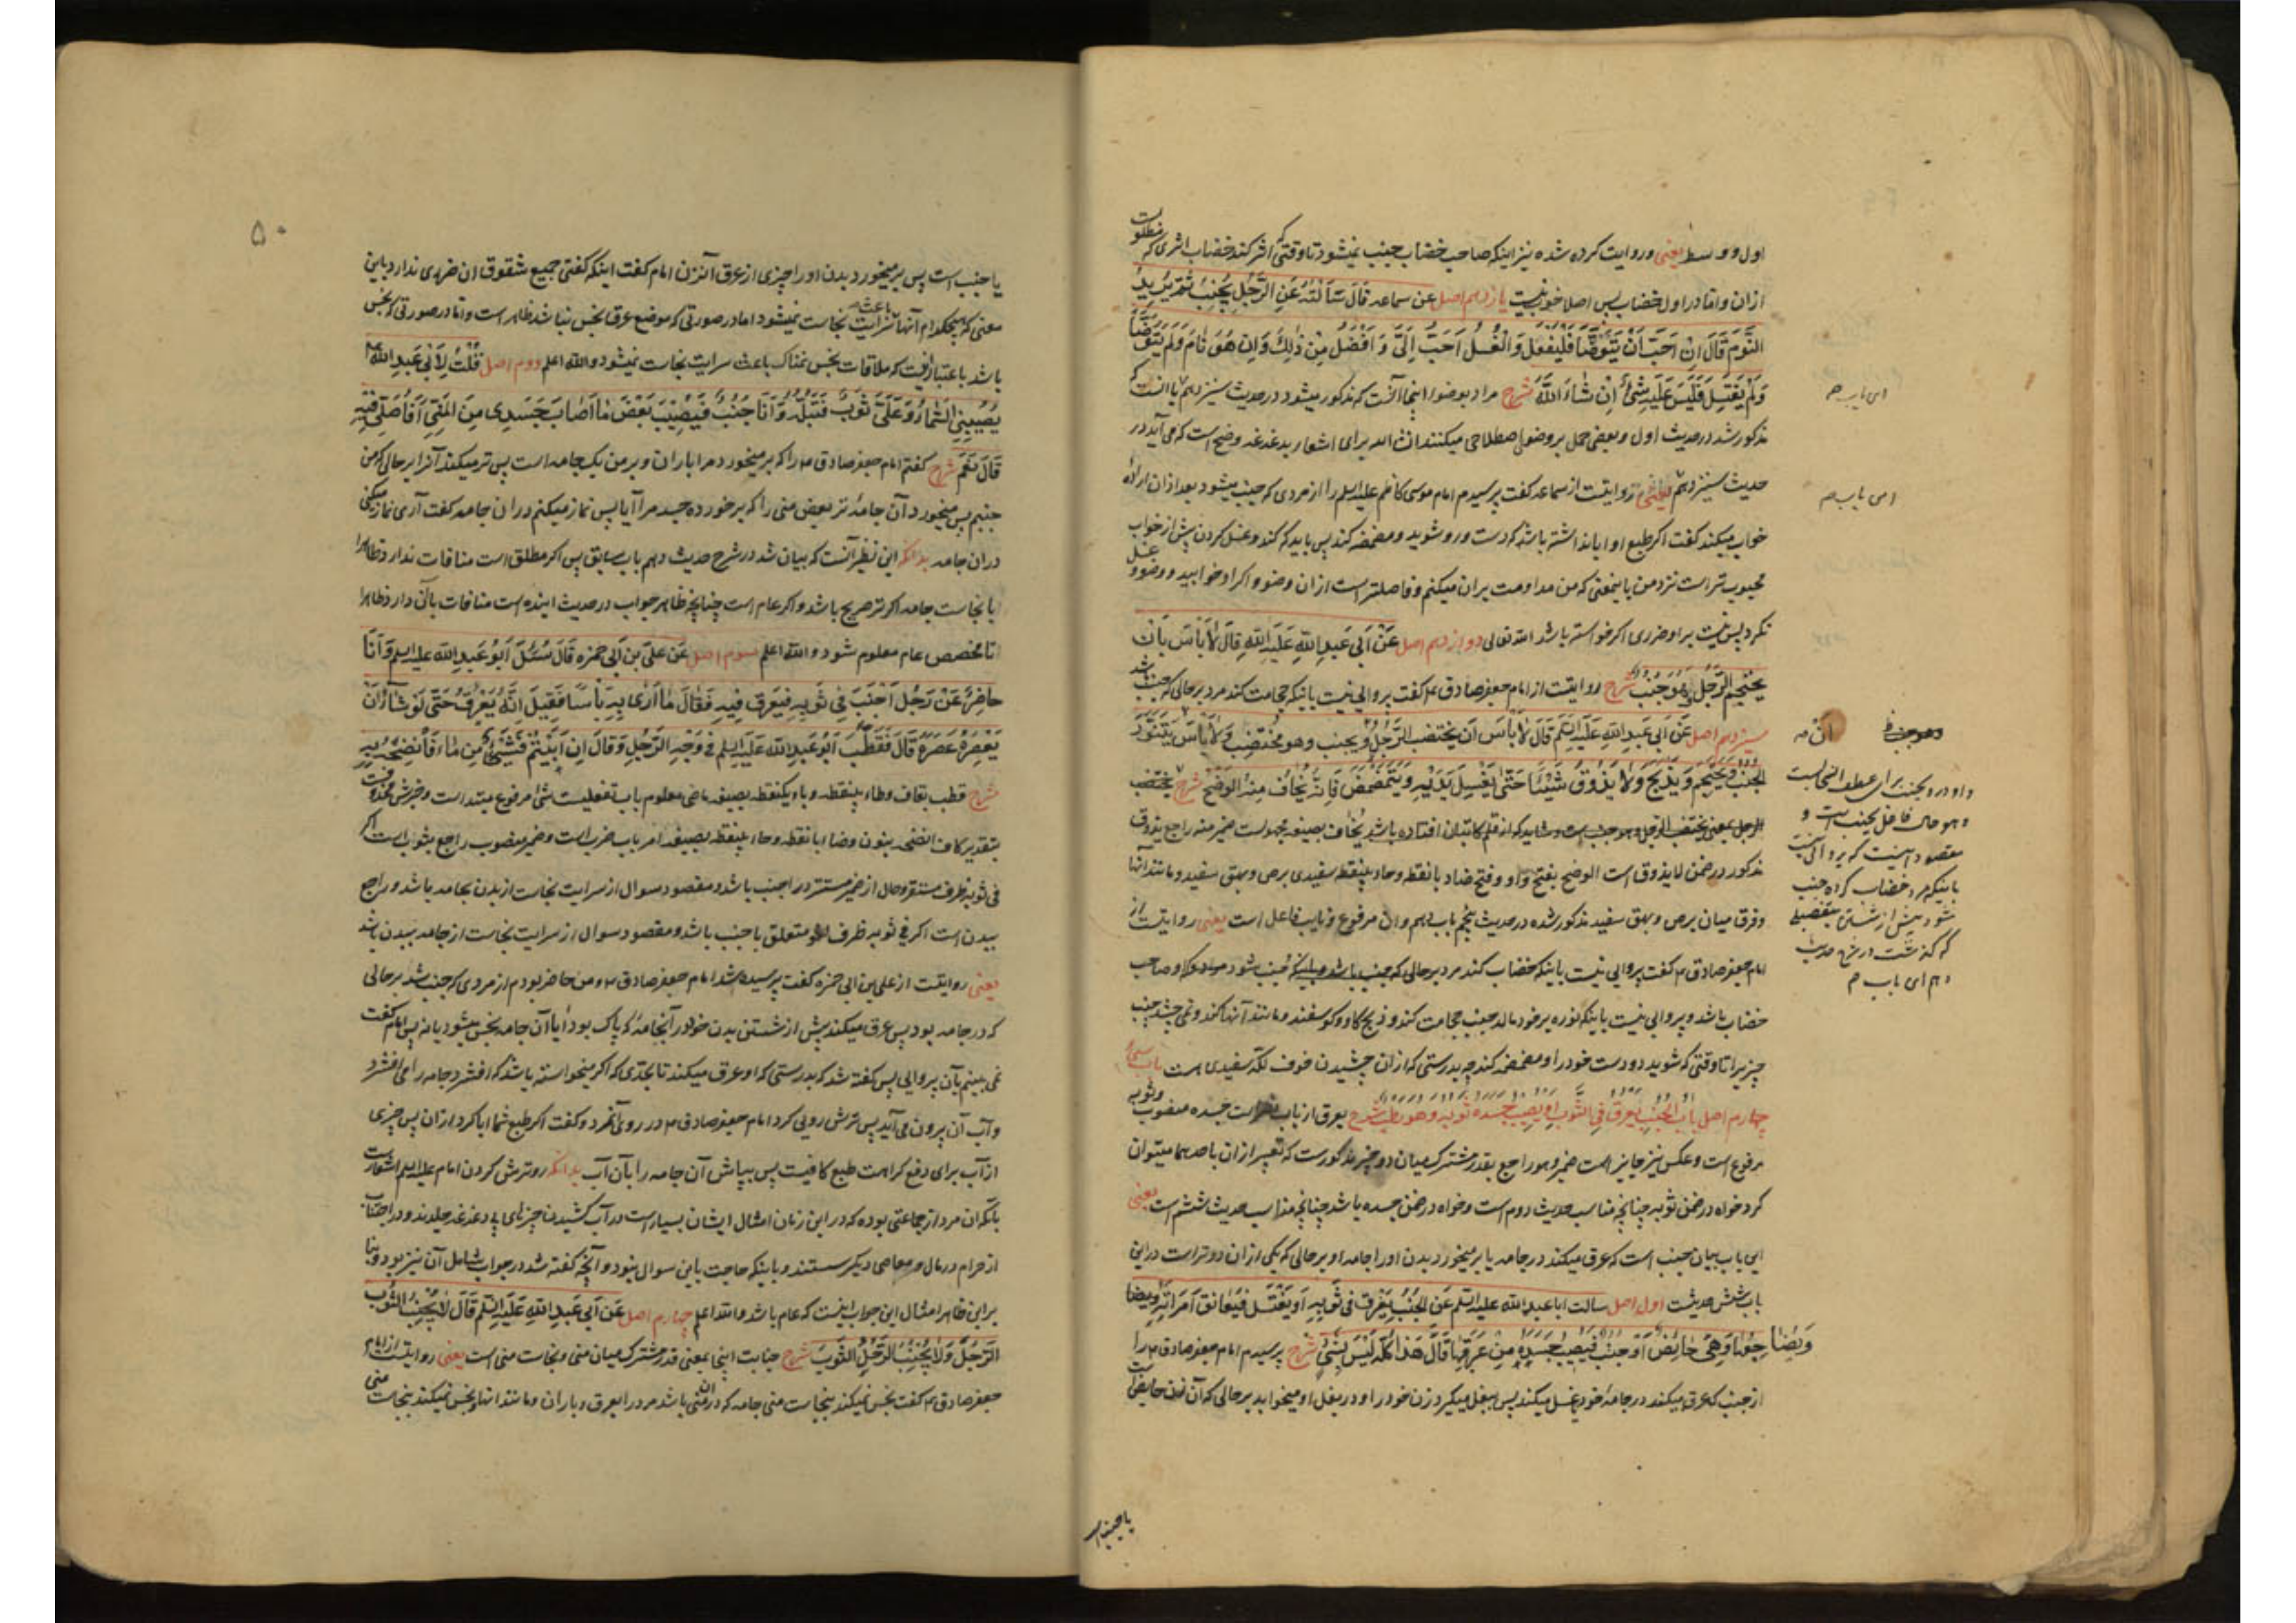 اول و وسط یعنی و روایت کرده شده نیز اینکه صاحب خضاب جنب نمیشود تا وقتی که اثر کند خضاب اثری که مطلوبست
ازان و اما در اول خضاب پس اصلا خوب نیست یازدهم اصل عن سماعه قال سَاَلتُهُ عَنِ الرَّجُلِ یُجْنِبُ ثُمَّ یُرِیدُ
النَّوْمَ قَالَ اِنْ اَحَبَّ اَنْ یَتَوَضَّأَ فَلْیَفْعَلْ وَ الْغُسْلُ اَحَبُّ اِلَیَّ وَ اَفْضَلُ مِنْ ذٰلِکَ وَ اِنْ هُوَ نَامَ وَ لَمْ یَتَوَضَّأْ
وَ لَمْ یَغْتَسِلْ فَلَیْسَ عَلَیْهِ شَیْءٌ اِنْ شَاءَ اللّٰهُ شرح مراد بوضو اینجا آنست که مذکور میشود در حدیث سیزدهم یا انست که
مذکور شد در حدیث اول و بعضی حمل بر وضوء اصطلاحی میکنند انشاء الله برای اشعار بدغدغه وضح است که می آید در
حدیث سیزدهم یعنی روایتست از سماعه گفت پرسیدم امام موسی کاظم علیه السلم را از مردی که جنب میشود بعد ازان اراده
خواب میکند گفت اگر طبع او ابا نداشته باشد که دست و رو شوید و مضمضه کند پس باید که کند و غسل کردن پیش از خواب
محبوب تر است نزد من باینمعنی که من مداومت بران میکنم و فاضلتر است ازان وضو و اگر او خوابید و وضو و غسل
نکرد پس نیست بر او ضرری اگر خواسته باشد الله تعالی دوازدهم اصل عَنْ اَبِی عَبْدِ اللّٰهِ عَلَیْهِ السَّلَمِ قَالَ لَا بَأْسَ بِاَنْ
یَحْتَجِمَ الرَّجُلُ وَ هُوَ جُنُبٌ شرح روایتست از امام جعفر صادق ع گفت پروایی نیست باینکه حجامت کند مرد بر حالی که جنب باشد
سیزدهم اصل عَنْ اَبِی عَبْدِ اللّٰهِ عَلَیْهِ السَّلَمِ قَالَ لَا بَأْسَ اَنْ یَخْتَضِبَ الرَّجُلُ وَ یُجْنِبَ وَ هُوَ مُخْتَضِبٌ وَ لَا بَأْسَ یَتَنَوَّرَ
الْجُنُبُ وَ یَحْتَجِمَ وَ یَذْبَحَ وَ لَا یَذُوقُ شَیْئًا حَتّٰی یَغْسِلَ یَدَیْهِ وَ یَتَمَضْمَضَ فَاِنَّهُ یُخَافُ مِنْهُ الْوَضَحُ شرح یختضب
الرجل بمعنی یختضب الرجل و هو جنب است و شاید که از قلم کاتبان افتاده باشد یُخاف بصیغه مجهولست ضمیر منه راجع بذوق
مذکور در ضمن لا یذوق است الوضح بفتح واو و فتح ضاد با نقطه و حاء بینقطه سفیدی برص و بهق سفید و مانند آنها
و فرق میان برص و بهق سفید مذکور شده در حدیث پنجم باب دهم و ان مرفوع و نایب فاعل است یعنی روایتست از
امام جعفر صادق ع گفت پروایی نیست باینکه خضاب کند مرد بر حالی که جنب باشد و باینکه جنب شود و او صاحب
خضاب باشد و پروایی نیست باینکه نوره بر خود مالد جنب حجامت کند و ذبح گاو و گوسفند و مانند آنها کند و نمی چشد جنب
چیزیرا تا وقتی که شوید دو دست خود را و مضمضه کند چه بدرستی که ازان چشیدن خوف لکه سفیدی است باب سی
چهارم اصل بَابُ الْجُنُبِ یَعْرَقُ فِی الثَّوْبِ اَوْ یُصِیبُ جَسَدَهُ ثَوْبُهُ وَ هُوَ رَطْبٌ شرح یعرق از باب است جسده منصوب و ثوبه
مرفوع است و عکس نیز جایز است ضمیر و هو راجع بقدر مشترک میان دو چیز مذکورست که تعبیر ازان باحدهما میتوان
کرد خواه در ضمن ثوبه چنانچه مناسب حدیث دوم است و خواه در ضمن جسده باشد چنانچه مناسب حدیث ششم است یعنی
این باب بیان جنب است که عرق میکند در جامه یا بر میخورد بدن او را جامه او بر حالی که یکی ازان دو تر است در این
باب شش حدیثست اول اصل سالت ابا عبد الله علیه السلم عَنِ الْجُنُبِ یَعْرَقُ فِی ثَوْبِهِ اَوْ یَغْتَسِلُ فَیُعَانِقُ امْرَاَتَهُ وَ یُضَا
وَ یُضَاجِعُهَا وَ هِیَ حَائِضٌ اَوْ جُنُبٌ فَیُصِیبُ جَسَدَهُ مِنْ عَرَقِهَا قَالَ هٰذَا کُلُّهُ لَیْسَ بِشَیْءٍ شرح پرسیدم امام جعفر صادق ع را
از جنب که عرق میکند در جامه خود یا غسل میکند پس ببغل میگیرد زن خود را و در بغل او میخوابد بر حالی که آن زن حایض است
ای باب م
امی باب م
ان مه
واو در و یجنب برای عطف انسحابست
و هو حال فاعل یجنب است و
مقصود اینست که پروایی نیست
باینکه مرد خضاب کرده جنب
شود پیش از شستن بتفصیلی
که گذشت در شرح حدیث
دهم ای باب م
یا جنب است
۵۰
یا جنب است پس بر میخورد بدن او را چیزی از عرق آنزن امام گفت اینکه گفتی جمیع شقوق ان ضرری ندارد باین
معنی که هیچکدام آنها باعث سرایت نجاست نمیشود اما در صورتی که موضع عرق نجس نباشد ظاهر است و اما در صورتی که نجس
باشد باعتبار اینست که ملاقات نجس نمناک باعث سرایت نجاست نمیشود و الله اعلم دوم اصل قُلْتُ لِاَبِی عَبْدِ اللّٰهِ ع
یُصِیبُنِی السَّمَاءُ وَ عَلَیَّ ثَوْبٌ فَتَبُلُّهُ وَ اَنَا جُنُبٌ فَیُصِیبُ بَعْضَ مَا اَصَابَ جَسَدِی مِنَ الْمَنِیِّ اَفَاُصَلِّی فِیهِ
قَالَ نَعَمْ شرح گفتم امام جعفر صادق ع را که بر میخورد مرا باران و بر من یک جامه است پس تر میکند آنرا بر حالی که من
جنبم پس میخورد آن جامه تر بعض منی را که بر خورده جسد مرا آیا پس نماز میکنم در ان جامه گفت آری نماز میکنی
دران جامه بدانکه این نظیر آنست که بیان شد در شرح حدیث دهم باب سابق پس اگر مطلق است منافات ندارد ظاهرا
با نجاست جامه اگر تر صریح باشد و اگر عام است چنانچه ظاهر جواب در حدیث آینده است منافات بآن دارد ظاهرا
تا مخصص عام معلوم شود و الله اعلم سوم اصل عَنْ عَلِیِّ بْنِ اَبِی حَمْزَه قَالَ سُئِلَ اَبُو عَبْدِ اللّٰهِ علیه السلم وَ اَنَا
حَاضِرٌ عَنْ رَجُلٍ اَجْنَبَ فِی ثَوْبِهِ فَیَعْرَقُ فِیهِ فَقَالَ مَا اَرٰی بِهِ بَأْسًا فَقِیلَ اِنَّهُ یَعْرَقُ حَتّٰی لَوْ شَاءَ اَنْ
یَعْصِرَهُ عَصَرَهُ قَالَ فَقَطَّبَ اَبُو عَبْدِ اللّٰهِ عَلَیْهِ السَّلَمِ فِی وَجْهِ الرَّجُلِ وَ قَالَ اِنْ اَبَیْتُمْ فَشَیْءٌ مِنْ مَاءٍ فَانْضَحْهُ بِهِ
شرح قطب بقاف و طاء بینقطه و باء یکنقطه بصیغه ماضی معلوم باب تفعیلست شیء مرفوع مبتداست و خبرش محذوفست
بتقدیر کاف انضحه بنون و ضاد با نقطه و حاء بینقطه بصیغه امر باب ضربست و ضمیر منصوب راجع بثوب است اگر
فی ثوبه ظرف مستقر و حال از ضمیر مستتر در اجنب باشد و مقصود سوال از سرایت نجاست از بدن بجامه باشد و راجع
ببدن است اگر فی ثوبه ظرف لغو متعلق باجنب باشد و مقصود سوال از سرایت نجاست از جامه ببدن باشد
یعنی روایتست از علی بن ابی حمزه گفت پرسیده شد امام جعفر صادق ع و من حاضر بودم از مردی که جنب شد بر حالی
که در جامه بود پس عرق میکند پیش از شستن بدن خود در آنجامه که پاک بود آیا آن جامه نجس میشود یا نه پس امام گفت
نمی بینم بآن پروایی پس گفته شد که بدرستی که او عرق میکند تا بحدّی که اگر میخواسته باشد که افشرد جامه را می افشرد
و آب آن بیرون می آید پس ترش رویی کرد امام جعفر صادق ع در روی آنمرد و گفت اگر طبع شما ابا کرد ازان پس چیزی
از آب برای دفع کراهت طبع کافیست پس بپاش آن جامه را بآن آب بدانکه رو ترش کردن امام علیه السلم اشعارست
بآنکه ان مرد از جماعتی بوده که در این زمان امثال ایشان بسیار است در آب کشیدن چیزهای بی دغدغه جلدند و در اجتناب
از حرام در مال و معاصی دیگر سستند و باینکه حاجت باین سوال نبود و آنچه گفته شد در جواب شامل آن نیز بود و بنا
بر این ظاهر امثال این جواب اینست که عام باشد و الله اعلم چهارم اصل عَنْ اَبِی عَبْدِ اللّٰهِ عَلَیْهِ السَّلَمِ قَالَ لَا یُجْنِبُ الثَّوْبُ
الرَّجُلَ وَ لَا یُجْنِبُ الرَّجُلُ الثَّوْبَ شرح جنابت اینجا بمعنی قدر مشترک میان منی و نجاست منی است یعنی روایتست از امام
جعفر صادق ع گفت نجس نمیکند بنجاست منی جامه که در ان منی باشد مرد را بعرق و باران و مانند انها و نجس نمیکند بنجاست منی